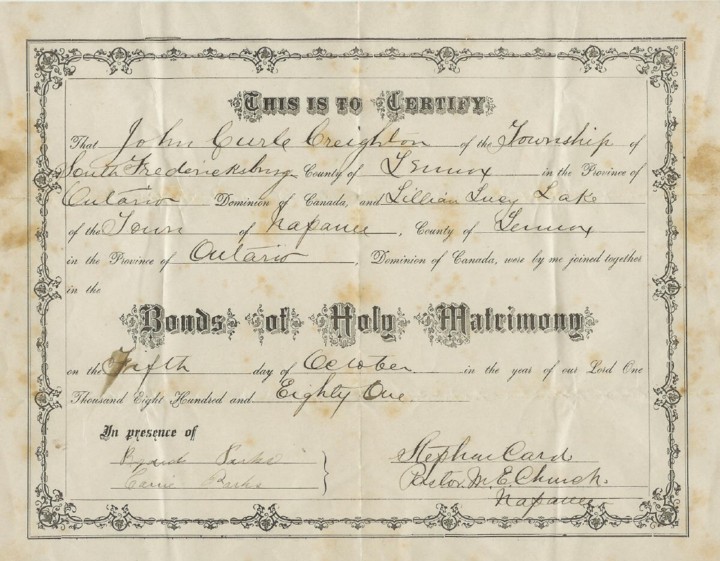 THIS IS TO CERTIFY
That John Curle Creighton of the Township of
South Fredericksburg County of Lennox in the Province of
Ontario Dominion of Canada, and Lillian Lucy Lake
of the Town of Napanee, County of Lennox
in the Province of Ontario, Dominion of Canada, were by me joined together
in the
Bonds of Holy Matrimony
on the Fifth day of October in the year of our Lord One
Thousand Eight Hundred and Eighty One.
In presence of
Parks
Carrie Parks
Stephen Card
Pastor M E Church
Napanee